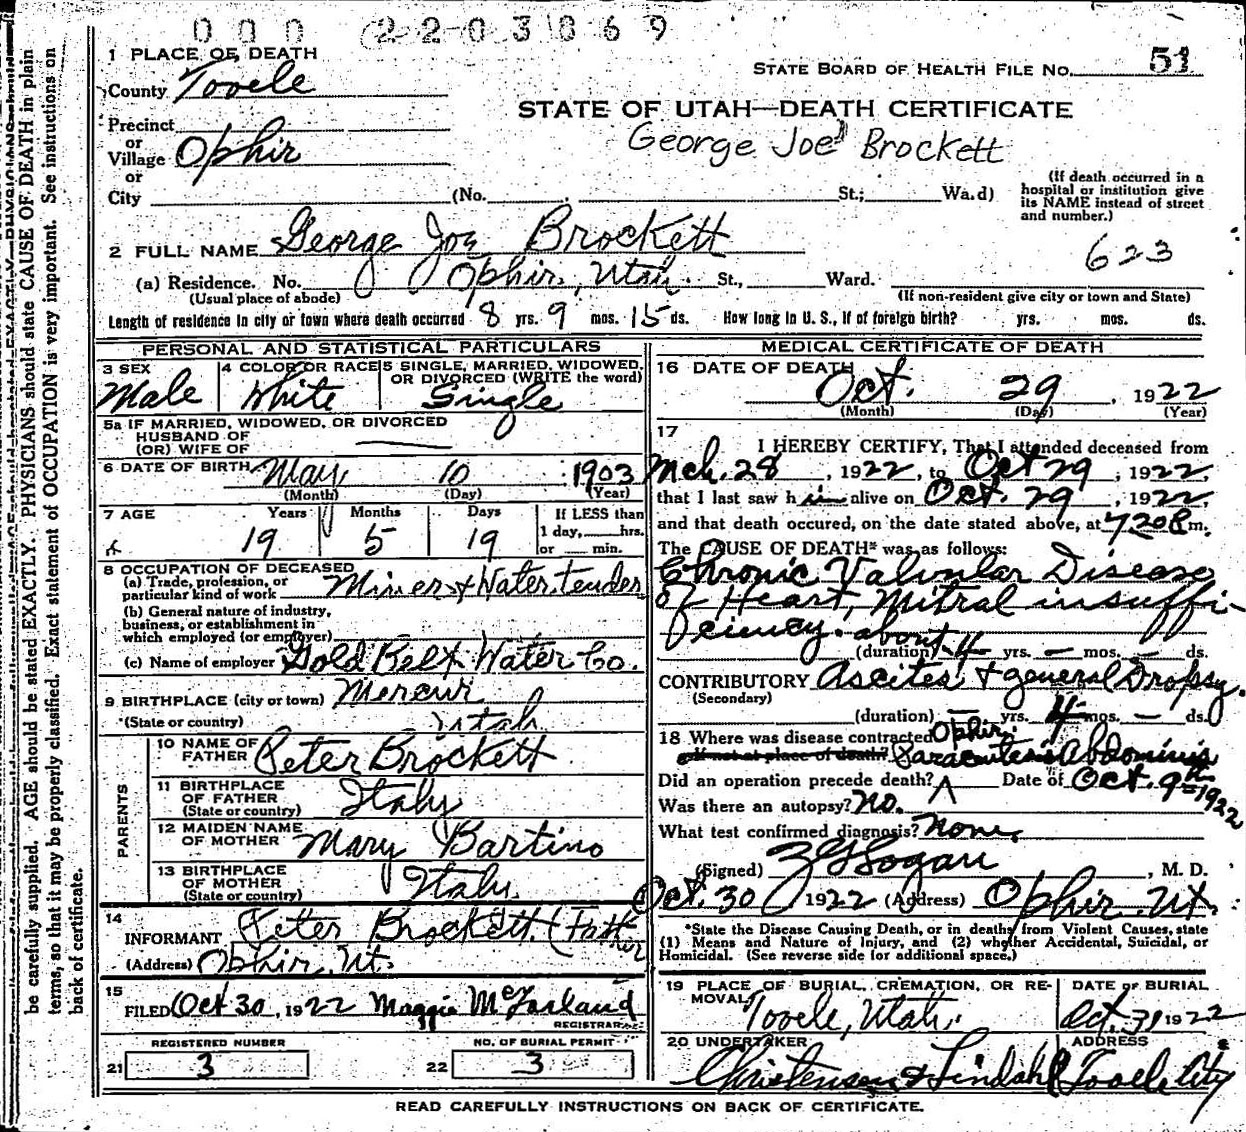 0 0 0 2 2 0 3 8 6 9
1 PLACE OF DEATH
STATE BOARD OF HEALTH FILE No. 51
County Tooele
STATE OF UTAH—DEATH CERTIFICATE
George Joe Brockett
Precinct
or
Village Ophir
or
City (No. St.; Wa.d)
(If death occurred in a
hospital or institution give
its NAME instead of street
and number.)
2 FULL NAME George Joe Brockett
623
(a) Residence. No. Ophir, Utah. St., Ward.
(Usual place of abode)
(If non-resident give city or town and State)
Length of residence in city or town where death occurred 8 yrs. 9 mos. 15 ds. How long in U. S., if of foreign birth? yrs. mos. ds.
PERSONAL AND STATISTICAL PARTICULARS
3 SEX
Male
4 COLOR OR RACE
White
5 SINGLE, MARRIED, WIDOWED,
OR DIVORCED (WRITE the word)
Single
5a IF MARRIED, WIDOWED, OR DIVORCED
HUSBAND OF
(OR) WIFE OF
6 DATE OF BIRTH May 10 1903
(Month) (Day) (Year)
7 AGE Years Months Days
19 5 19
If LESS than
1 day, hrs.
or min.
8 OCCUPATION OF DECEASED
(a) Trade, profession, or
particular kind of work Miner & Water tender
(b) General nature of industry,
business, or establishment in
which employed (or employer)
(c) Name of employer Gold Belt Water Co.
9 BIRTHPLACE (city or town) Mercur
(State or country) Utah
PARENTS
10 NAME OF
FATHER Peter Brockett
11 BIRTHPLACE
OF FATHER
(State or country) Italy
12 MAIDEN NAME
OF MOTHER Mary Bartino
13 BIRTHPLACE
OF MOTHER
(State or country) Italy
14
INFORMANT Peter Brockett (Father
(Address) Ophir, Ut.
15
FILED Oct 30, 1922 Maggie McFarland
REGISTRAR
REGISTERED NUMBER
21 3
NO. OF BURIAL PERMIT
22 3
MEDICAL CERTIFICATE OF DEATH
16 DATE OF DEATH
Oct. 29, 1922
(Month) (Day) (Year)
17
I HEREBY CERTIFY, That I attended deceased from
Mch. 28, 1922, to Oct 29, 1922,
that I last saw h im alive on Oct. 29, 1922,
and that death occured, on the date stated above, at 720 P m.
The CAUSE OF DEATH* was as follows:
Chronic Valvular Disease
of Heart, Mitral insuffi-
ciency. about
(duration) 4 yrs. — mos. — ds.
CONTRIBUTORY Ascites & general Dropsy.
(Secondary)
(duration) — yrs. 4 mos. — ds.
18 Where was disease contracted Ophir.
if not at place of death? Paracentesis Abdominis
Did an operation precede death? ^ Date of Oct. 9th 1922
Was there an autopsy? No.
What test confirmed diagnosis? None.
(Signed) Logan, M. D.
Oct. 30 1922 (Address) Ophir. Ut.
*State the Disease Causing Death, or in deaths from Violent Causes, state
(1) Means and Nature of Injury, and (2) whether Accidental, Suicidal, or
Homicidal. (See reverse side for additional space.)
19 PLACE OF BURIAL, CREMATION, OR RE-
MOVAL
Tooele, Utah.
DATE OF BURIAL
Oct. 31 1922
20 UNDERTAKER
Christensen & Lindahl
ADDRESS
Tooele City
READ CAREFULLY INSTRUCTIONS ON BACK OF CERTIFICATE.
be carefully supplied. AGE should be stated EXACTLY. PHYSICIANS should state CAUSE OF DEATH in plain
terms, so that it may be properly classified. Exact statement of OCCUPATION is very important. See instructions on
back of certificate.